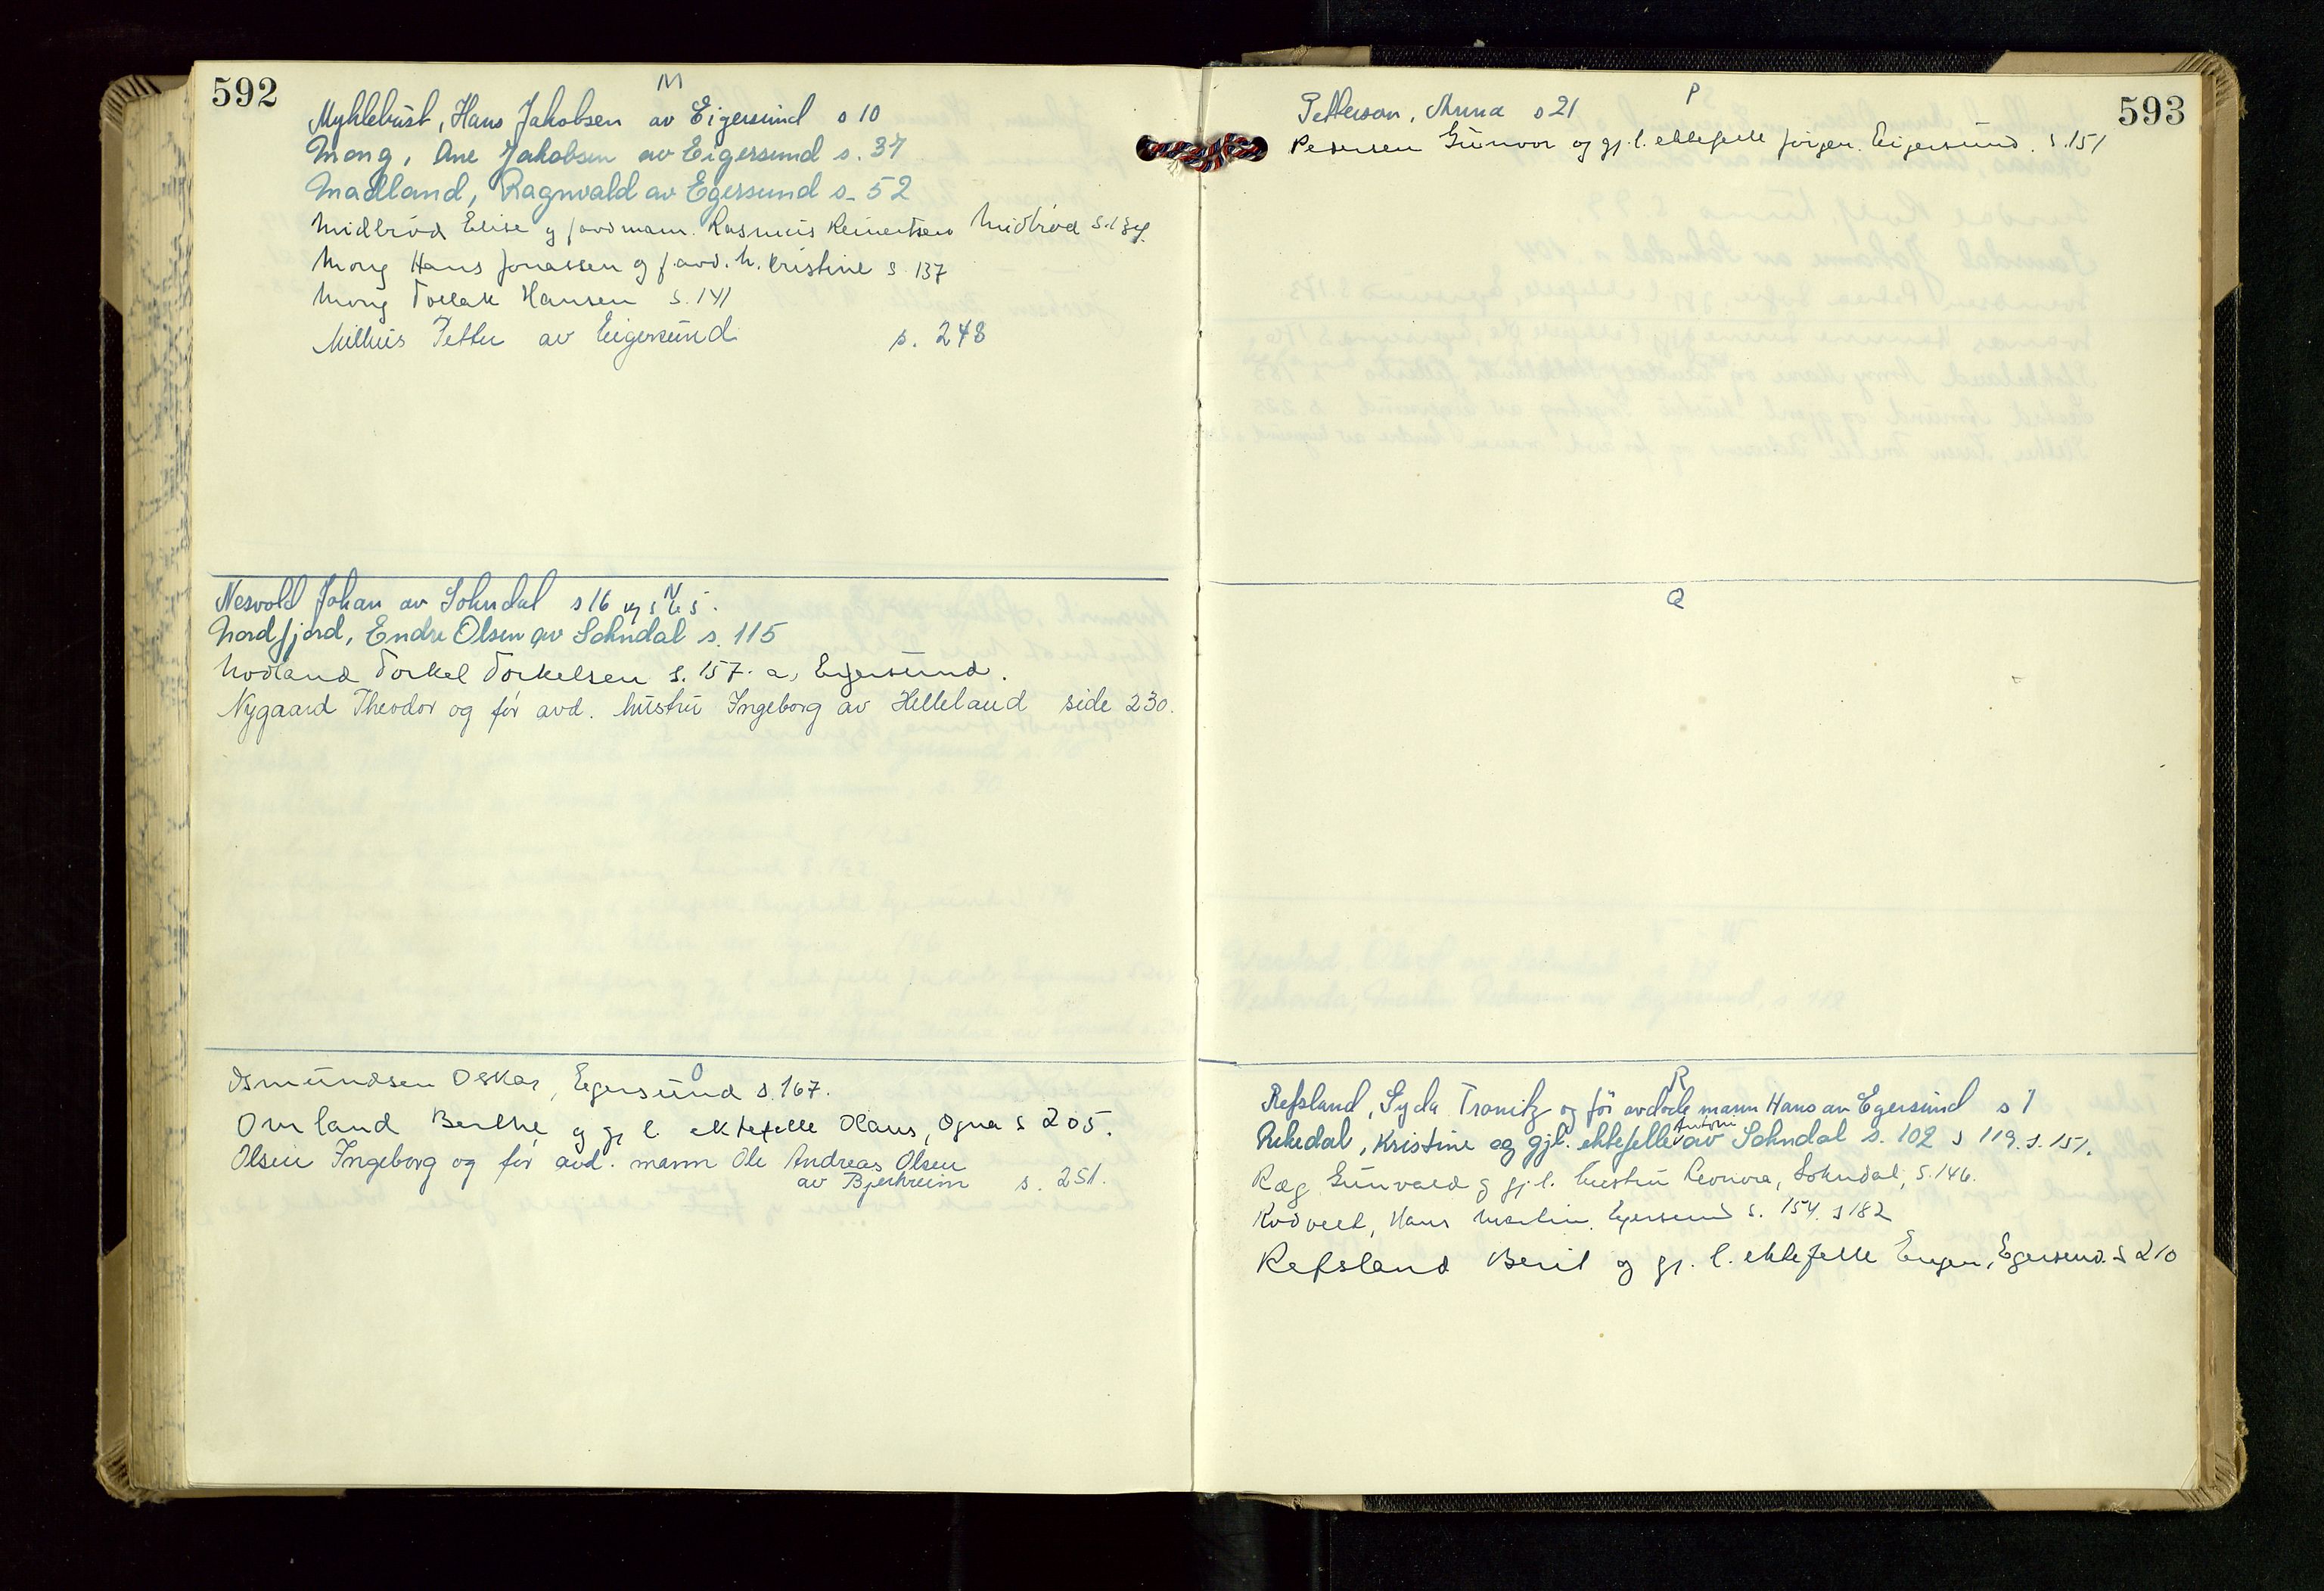 592
M
Myklebust, Hans Jakobsen av Eigersund s 10
Mong, Ane Jakobsen av Eigersund s. 37
Madland, Ragnvald av Egersund s. 52
Midbrød Elise og f avd mann. Rasmus Reinertsen Midbrød s. 134.
Mong Hans Jonassen og f. avd. h. Kristine s. 137
Mong Tollak Hansen s. 141
Milhus Petter av Eigersund s. 248
N
Nesvold Johan av Sokndal s 16 og s 65.
Nordfjord, Endre Olsen av Sokndal s. 115
Nodland Torkel Torkelsen s. 157. a, Egersund.
Nygaard Theodor og før avd. hustru Ingeborg av Helleland side 230.
O
Osmundsen Oskar, Egersund s. 167.
Omland Berthe og gj l. ektefelle Klaus, Ogna s 205.
Olsen Ingeborg og før avd. mann Ole Andreas Olsen
av Bjerkreim s. 251.
593
P
Petterson, Anna s 21
Pedersen Gunvor og gj. l. ektefelle Jørgen. Eigersund. s. 151
Q
R
Refsland, Syda Tranitz og før avdøde mann Hans av Egersund s 1
Rekedal, Kristine og gjl. ektefelle Antoni av Sokndal s. 102 s 119. s. 151.
Ræg Gunvald og gj. l. hustru Leonora, Sokndal, s. 146.
Rodvelt, Hans Martin. Egersund s. 154. s 182
Refsland Berit og gj. l. ektefelle Eugen, Egersund. s 210